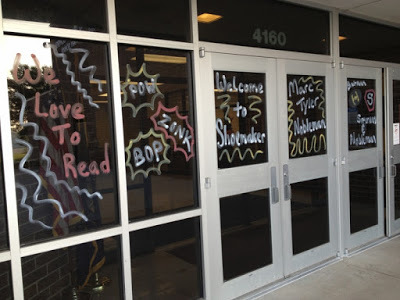 4160
We
Love
To
Read
POW
ZONK
BOP
Welcome
to
Shoemaker
Marc
Tyler
Nobleman
S
&
Nobleman